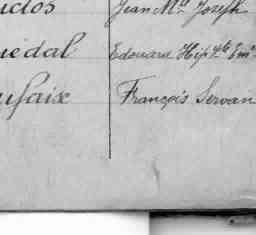 Jean Mie Joseph
édal Edouard Hip.te Em.
faix François Servan